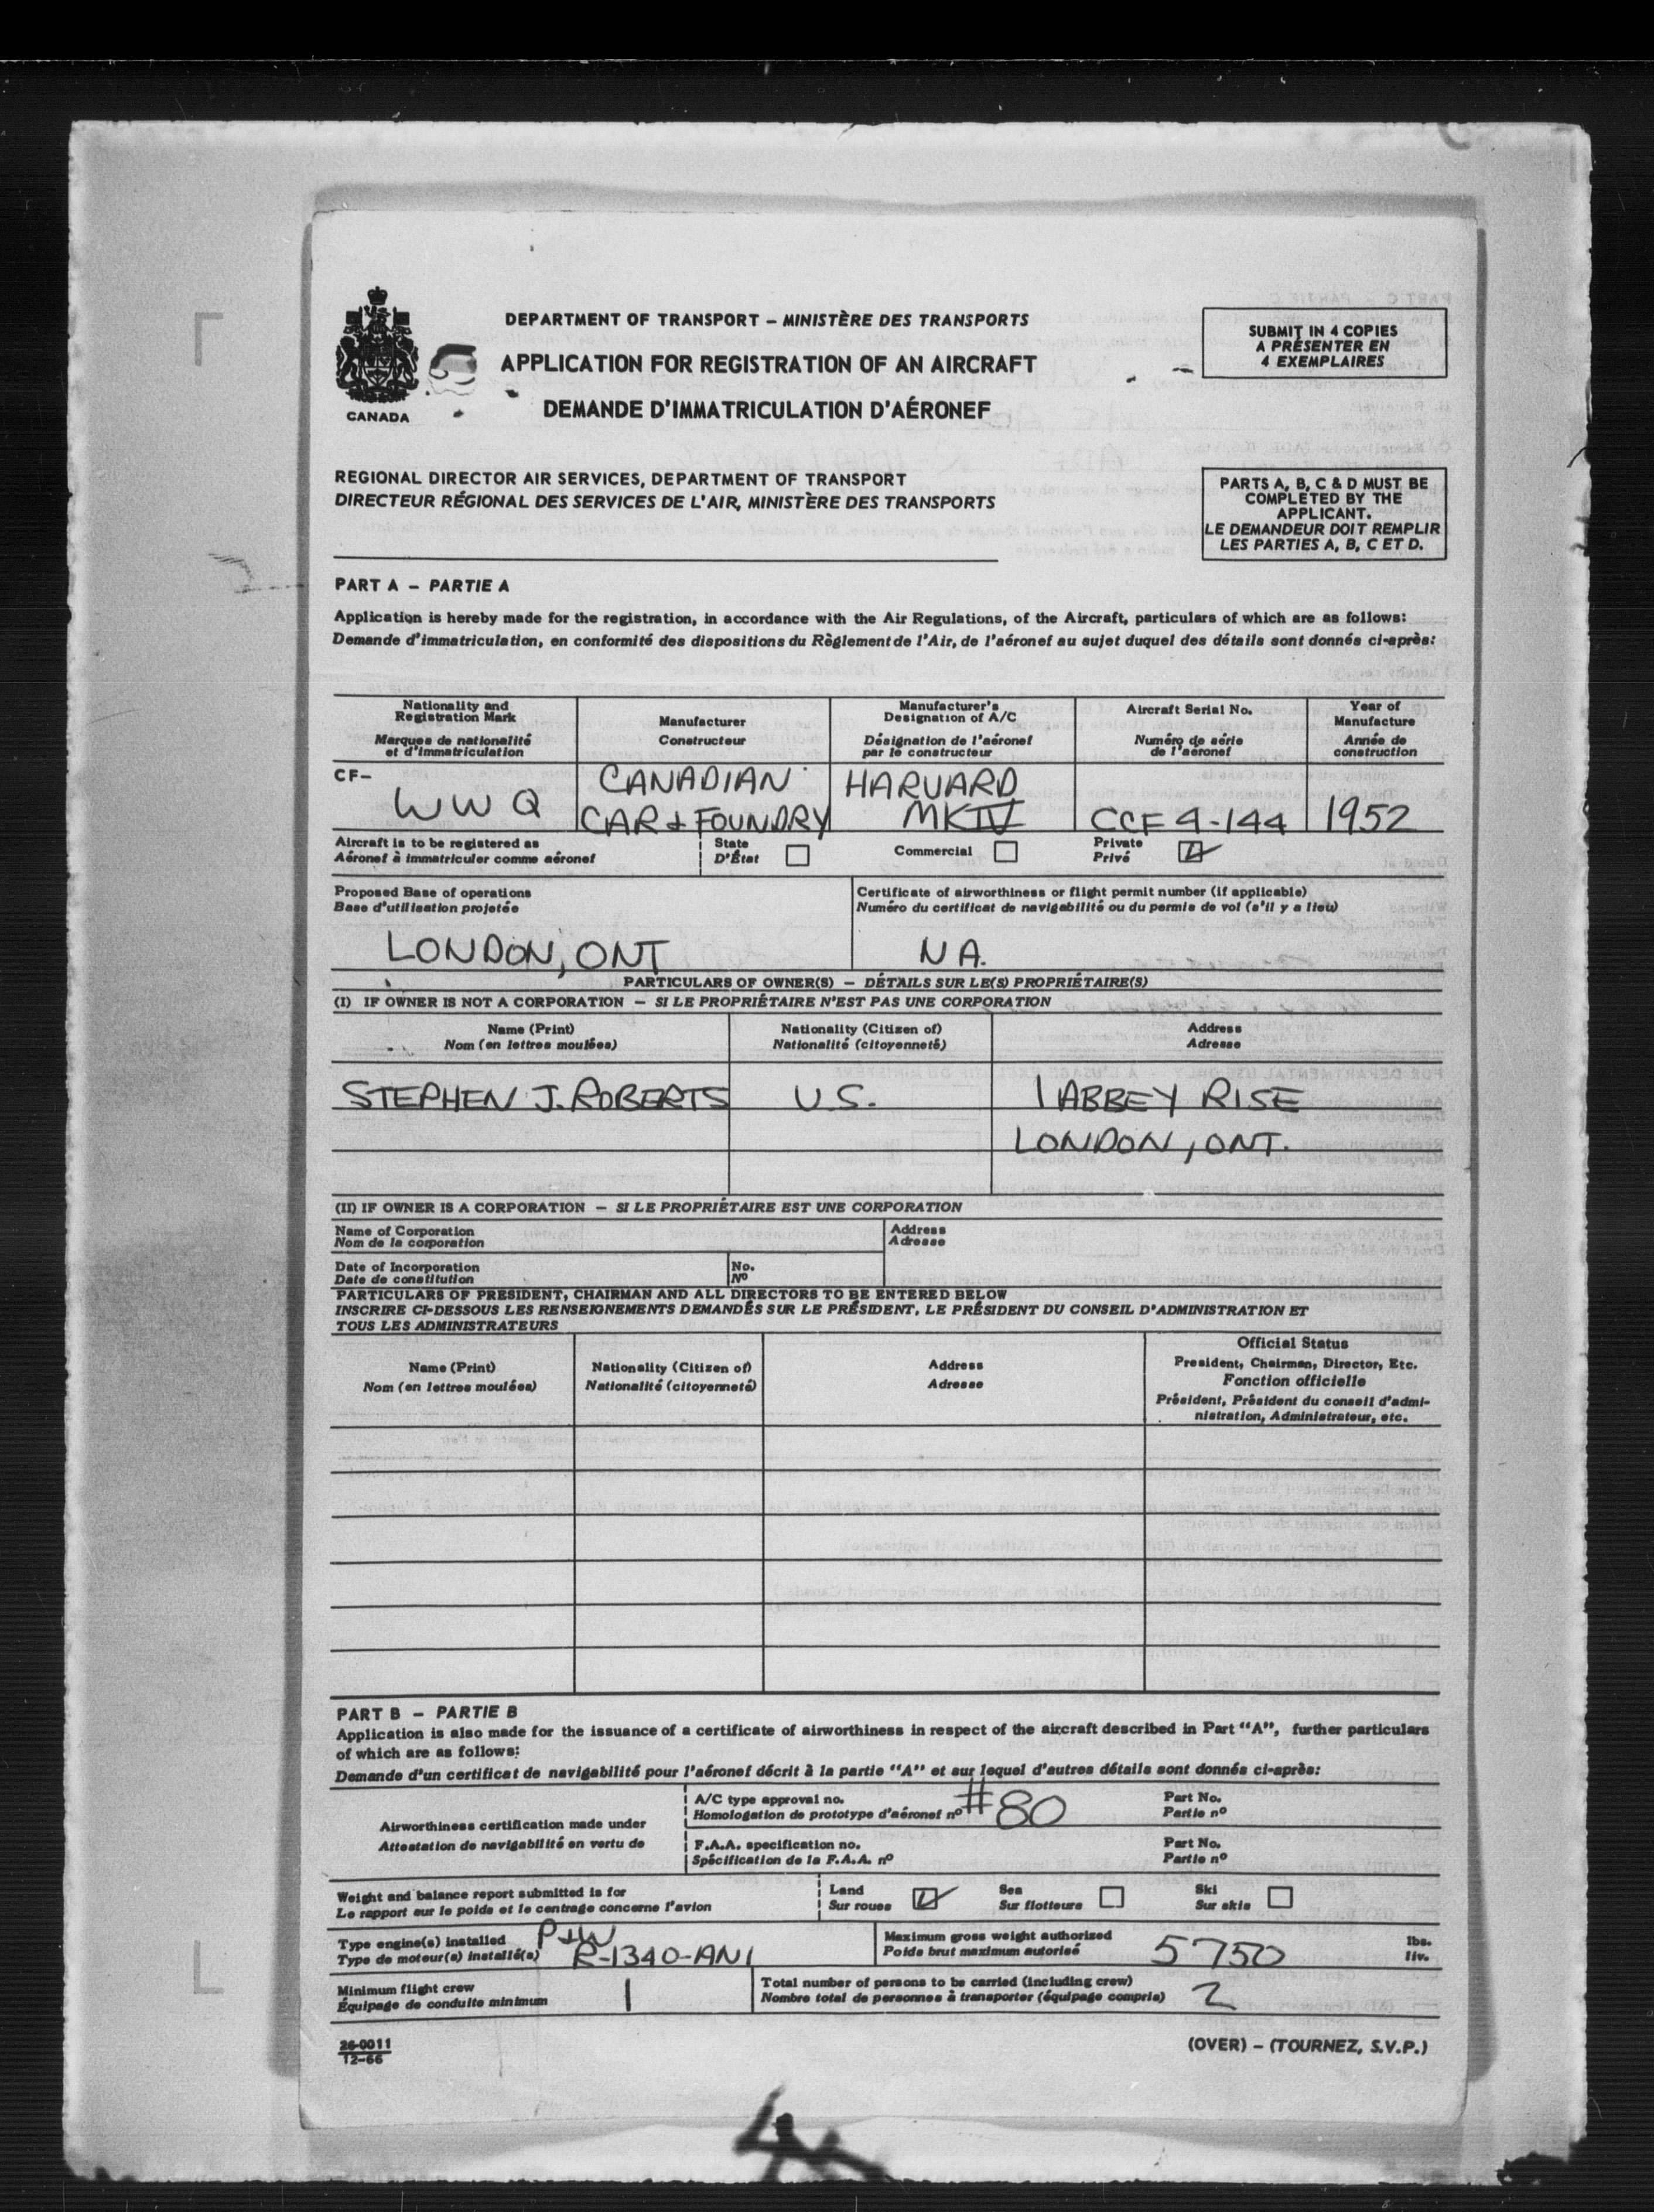 DEPARTMENT OF TRANSPORT – MINISTÈRE DES TRANSPORTS
APPLICATION FOR REGISTRATION OF AN AIRCRAFT
DEMANDE D'IMMATRICULATION D'AÉRONEF
CANADA
SUBMIT IN 4 COPIES
A PRÉSENTER EN
4 EXEMPLAIRES
REGIONAL DIRECTOR AIR SERVICES, DEPARTMENT OF TRANSPORT
DIRECTEUR RÉGIONAL DES SERVICES DE L'AIR, MINISTÈRE DES TRANSPORTS
PARTS A, B, C & D MUST BE
COMPLETED BY THE
APPLICANT.
LE DEMANDEUR DOIT REMPLIR
LES PARTIES A, B, C ET D.
PART A – PARTIE A
Application is hereby made for the registration, in accordance with the Air Regulations, of the Aircraft, particulars of which are as follows:
Demande d'immatriculation, en conformité des dispositions du Règlement de l'Air, de l'aéronef au sujet duquel des détails sont donnés ci-après:
Nationality and
Registration Mark
Marques de nationalité
et d'immatriculation
Manufacturer
Constructeur
Manufacturer's
Designation of A/C
Désignation de l'aéronef
par le constructeur
Aircraft Serial No.
Numéro de série
de l'aéronef
Year of
Manufacture
Année de
construction
CF-
WWQ
CANADIAN
CAR & FOUNDRY
HARVARD
MK IV
CCF 4-144
1952
Aircraft is to be registered as
Aéronef à immatriculer comme aéronef
State
D'État
Commercial
Private
Privé
Proposed Base of operations
Base d'utilisation projetée
LONDON, ONT
Certificate of airworthiness or flight permit number (if applicable)
Numéro du certificat de navigabilité ou du permis de vol (s'il y a lieu)
NA.
PARTICULARS OF OWNER(S) – DÉTAILS SUR LE(S) PROPRIÉTAIRE(S)
(I) IF OWNER IS NOT A CORPORATION – SI LE PROPRIÉTAIRE N'EST PAS UNE CORPORATION
Name (Print)
Nom (en lettres moulées)
Nationality (Citizen of)
Nationalité (citoyenneté)
Address
Adresse
STEPHEN J. ROBERTS
U.S.
1 ABBEY RISE
LONDON, ONT.
(II) IF OWNER IS A CORPORATION – SI LE PROPRIÉTAIRE EST UNE CORPORATION
Name of Corporation
Nom de la corporation
Address
Adresse
Date of Incorporation
Date de constitution
No.
Nº
PARTICULARS OF PRESIDENT, CHAIRMAN AND ALL DIRECTORS TO BE ENTERED BELOW
INSCRIRE CI-DESSOUS LES RENSEIGNEMENTS DEMANDÉS SUR LE PRÉSIDENT, LE PRÉSIDENT DU CONSEIL D'ADMINISTRATION ET
TOUS LES ADMINISTRATEURS
Name (Print)
Nom (en lettres moulées)
Nationality (Citizen of)
Nationalité (citoyenneté)
Address
Adresse
Official Status
President, Chairman, Director, Etc.
Fonction officielle
Président, Président du conseil d'admi-
nistration, Administrateur, etc.
PART B – PARTIE B
Application is also made for the issuance of a certificate of airworthiness in respect of the aircraft described in Part "A", further particulars
of which are as follows:
Demande d'un certificat de navigabilité pour l'aéronef décrit à la partie "A" et sur lequel d'autres détails sont donnés ci-après:
Airworthiness certification made under
Attestation de navigabilité en vertu de
A/C type approval no.
Homologation de prototype d'aéronef nº
#80
Part No.
Partie nº
F.A.A. specification no.
Spécification de la F.A.A. nº
Part No.
Partie nº
Weight and balance report submitted is for
Le rapport sur le poids et le centrage concerne l'avion
Land
Sur roues
Sea
Sur flotteurs
Ski
Sur skis
Type engine(s) installed
Type de moteur(s) installé(s)
P&W
R-1340-AN1
Maximum gross weight authorized
Poids brut maximum autorisé
5750
lbs.
liv.
Minimum flight crew
Équipage de conduite minimum
1
Total number of persons to be carried (including crew)
Nombre total de personnes à transporter (équipage compris)
2
26-0011
12-66
(OVER) – (TOURNEZ, S.V.P.)